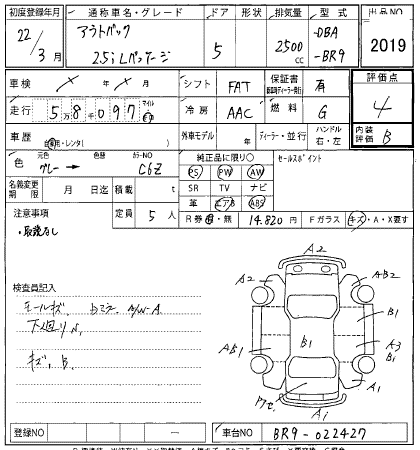 初度登録年月 通称車名・グレード ドア 形状 排気量 型式 出品NO
22/3月 アウトバック 2.5i Lパッケージ 5 2500cc -DBA -BR9 2019
車検 年 月 シフト FAT 保証書 有 評価点
走行 5万8千097 マイル 冷房 AAC 燃料 G 4
車歴 自家用・レンタ( ) 外車モデル 年 ディーラー・並行 ハンドル 右・左 内装評価 B
色 元色 グレー → 色替 カラーNO C6Z 純正品に限り○ セールスポイント
名義変更期限 月 日迄 積載 t PS PW AW
SR TV ナビ
革 エアB ABS
注意事項 定員 5人 R券 有・無 14,820円 Fガラス キズ・A・X要す
・取説なし
検査員記入
モールキズ, A/W-A
下廻りN,
キズ, B.
A2
A2 AB2
B1
AB1 B1 A3
B1
A1
ワセ
A1
登録NO — 車台NO BR9-022427